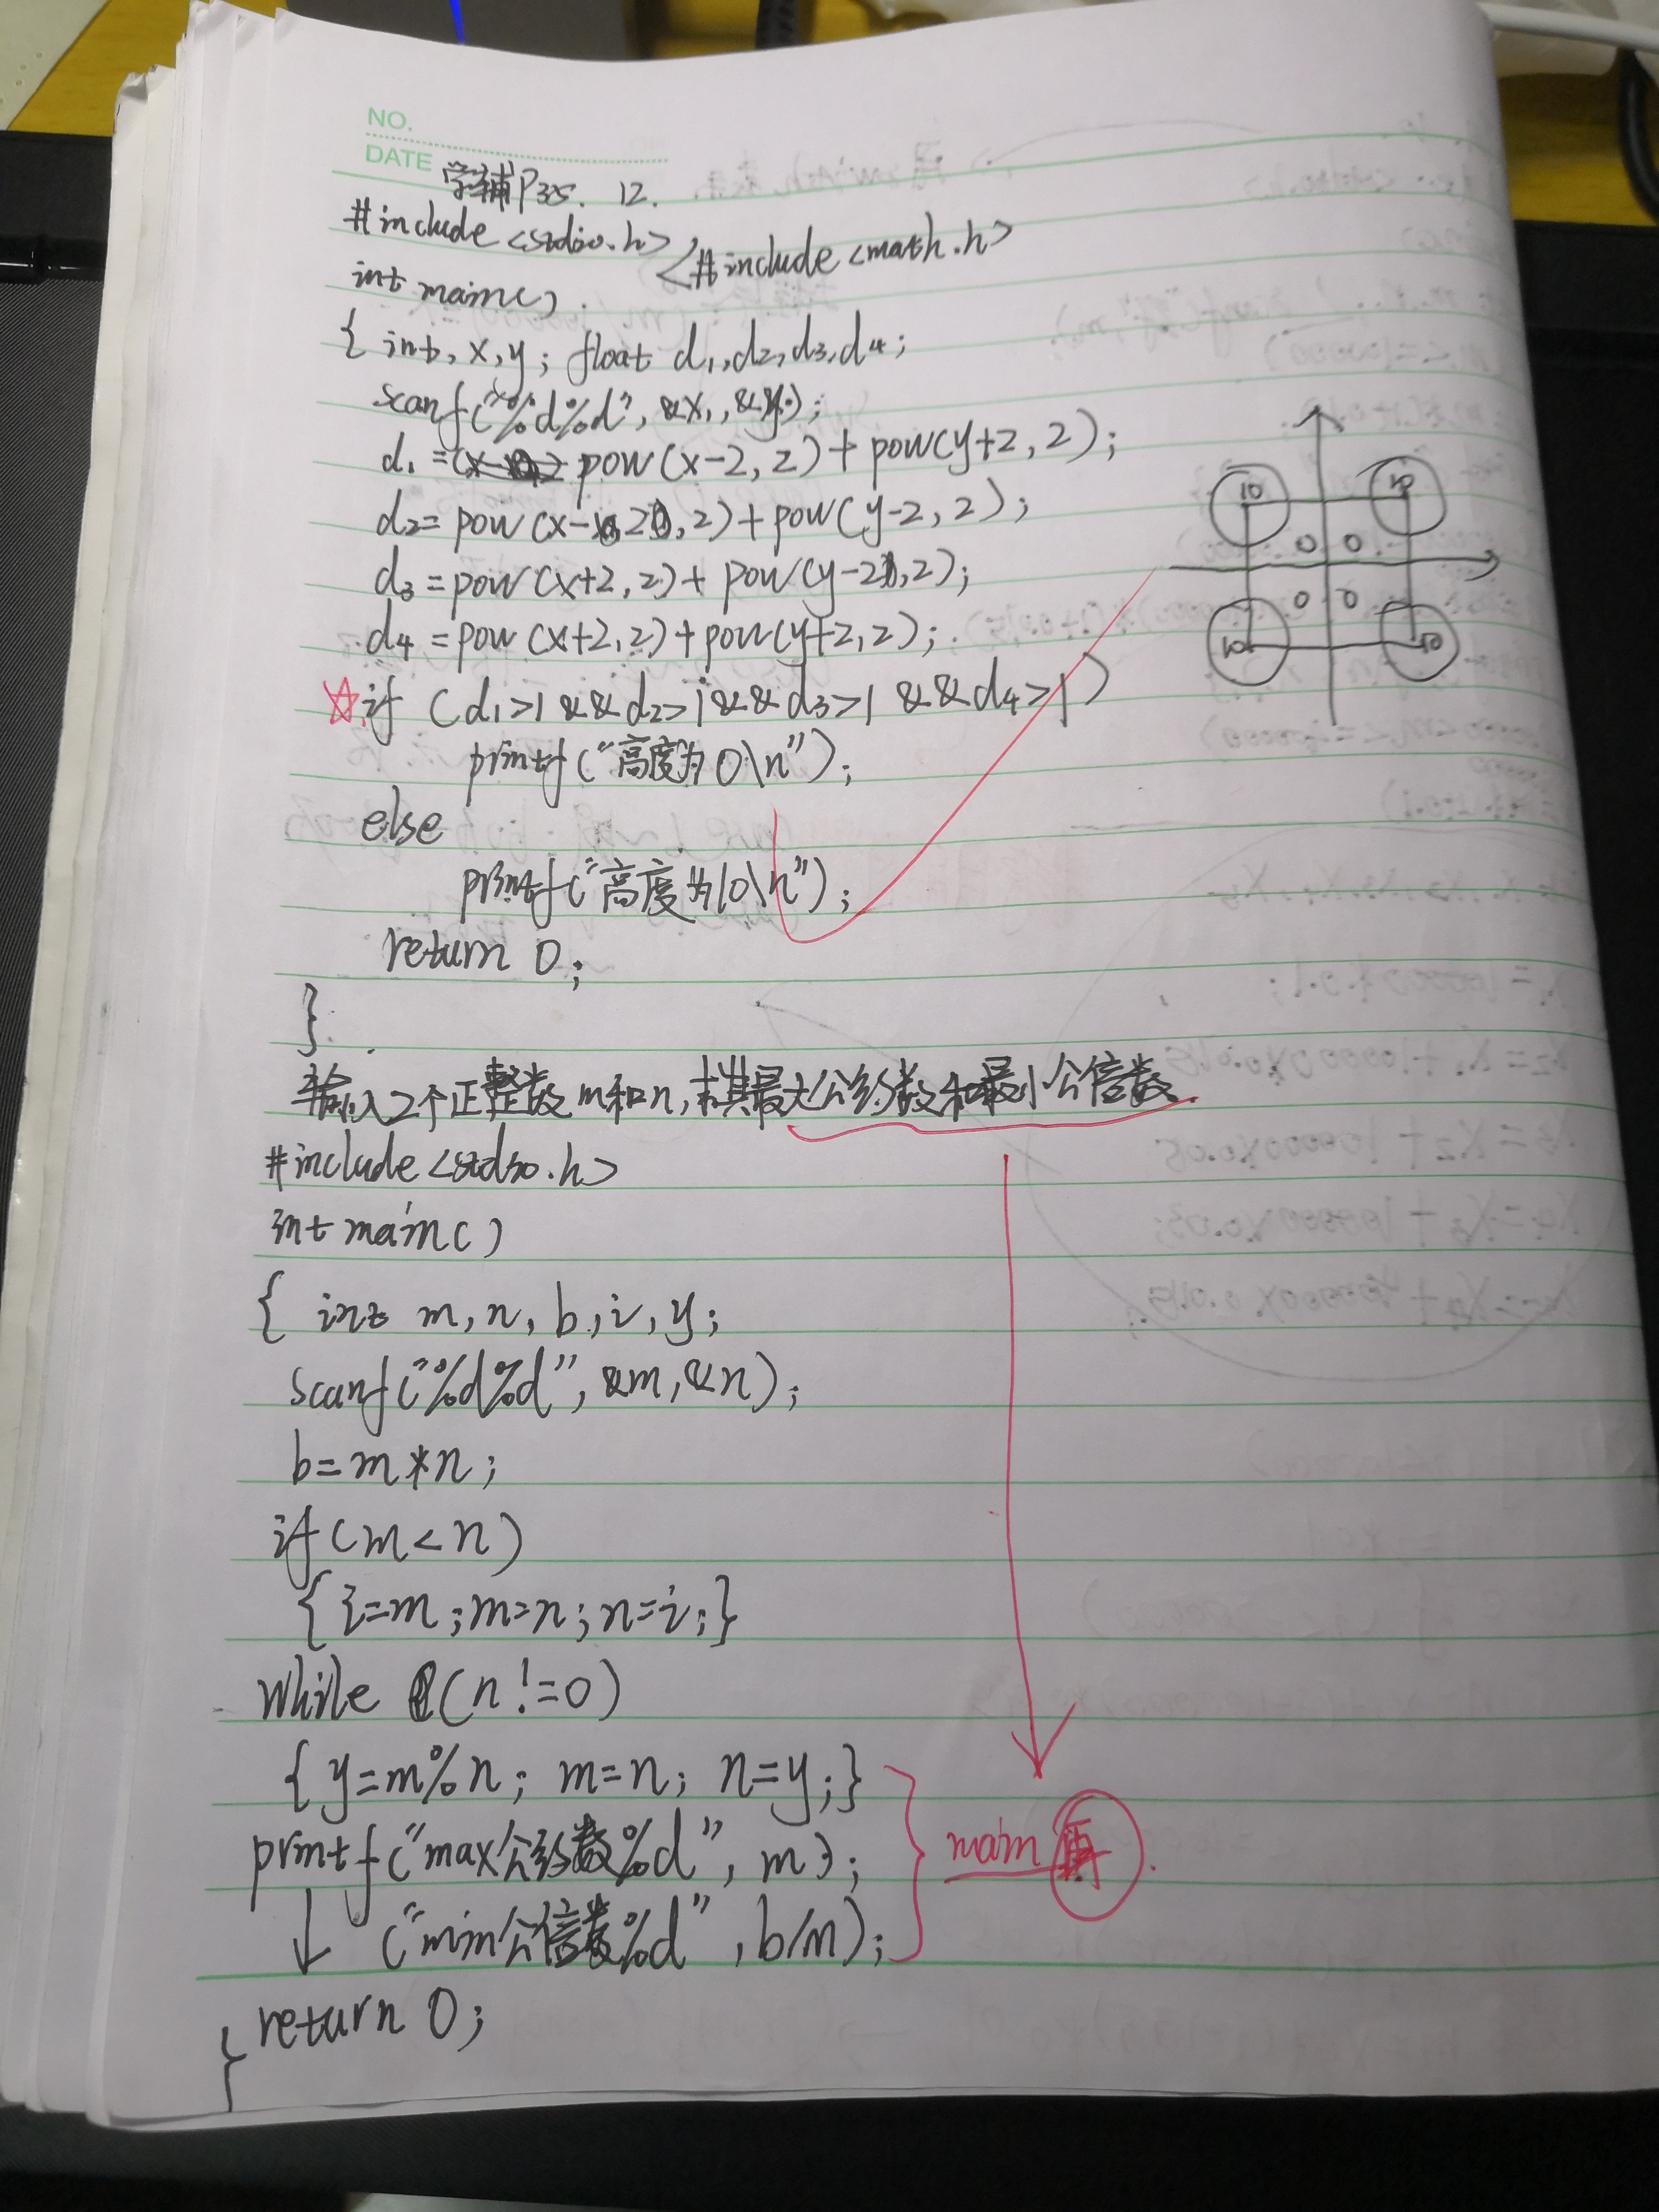 NO.
DATE
学辅P35. 12.
#include <stdio.h> #include <math.h>
int main()
{ int, x, y; float d1, d2, d3, d4;
scanf("%d%d", &x, &y);
d1 = pow(x-2, 2) + pow(y+2, 2);
d2 = pow(x-2, 2) + pow(y-2, 2);
d3 = pow(x+2, 2) + pow(y-2, 2);
d4 = pow(x+2, 2) + pow(y+2, 2);
☆ if (d1>1 && d2>1 && d3>1 && d4>1)
printf("高度为0\n");
else
printf("高度为10\n");
return 0;
}
10 10
0 0
0 0
10 10
输入2个正整数m和n,求其最大公约数和最小公倍数.
#include <stdio.h>
int main()
{ int m, n, b, i, y;
scanf("%d%d", &m, &n);
b=m*n;
if(m<n)
{i=m; m=n; n=i;}
while (n!=0)
{y=m%n; m=n; n=y;}
printf("max公约数%d", m);
↓ ("min公倍数%d", b/m);
main
return 0;
}